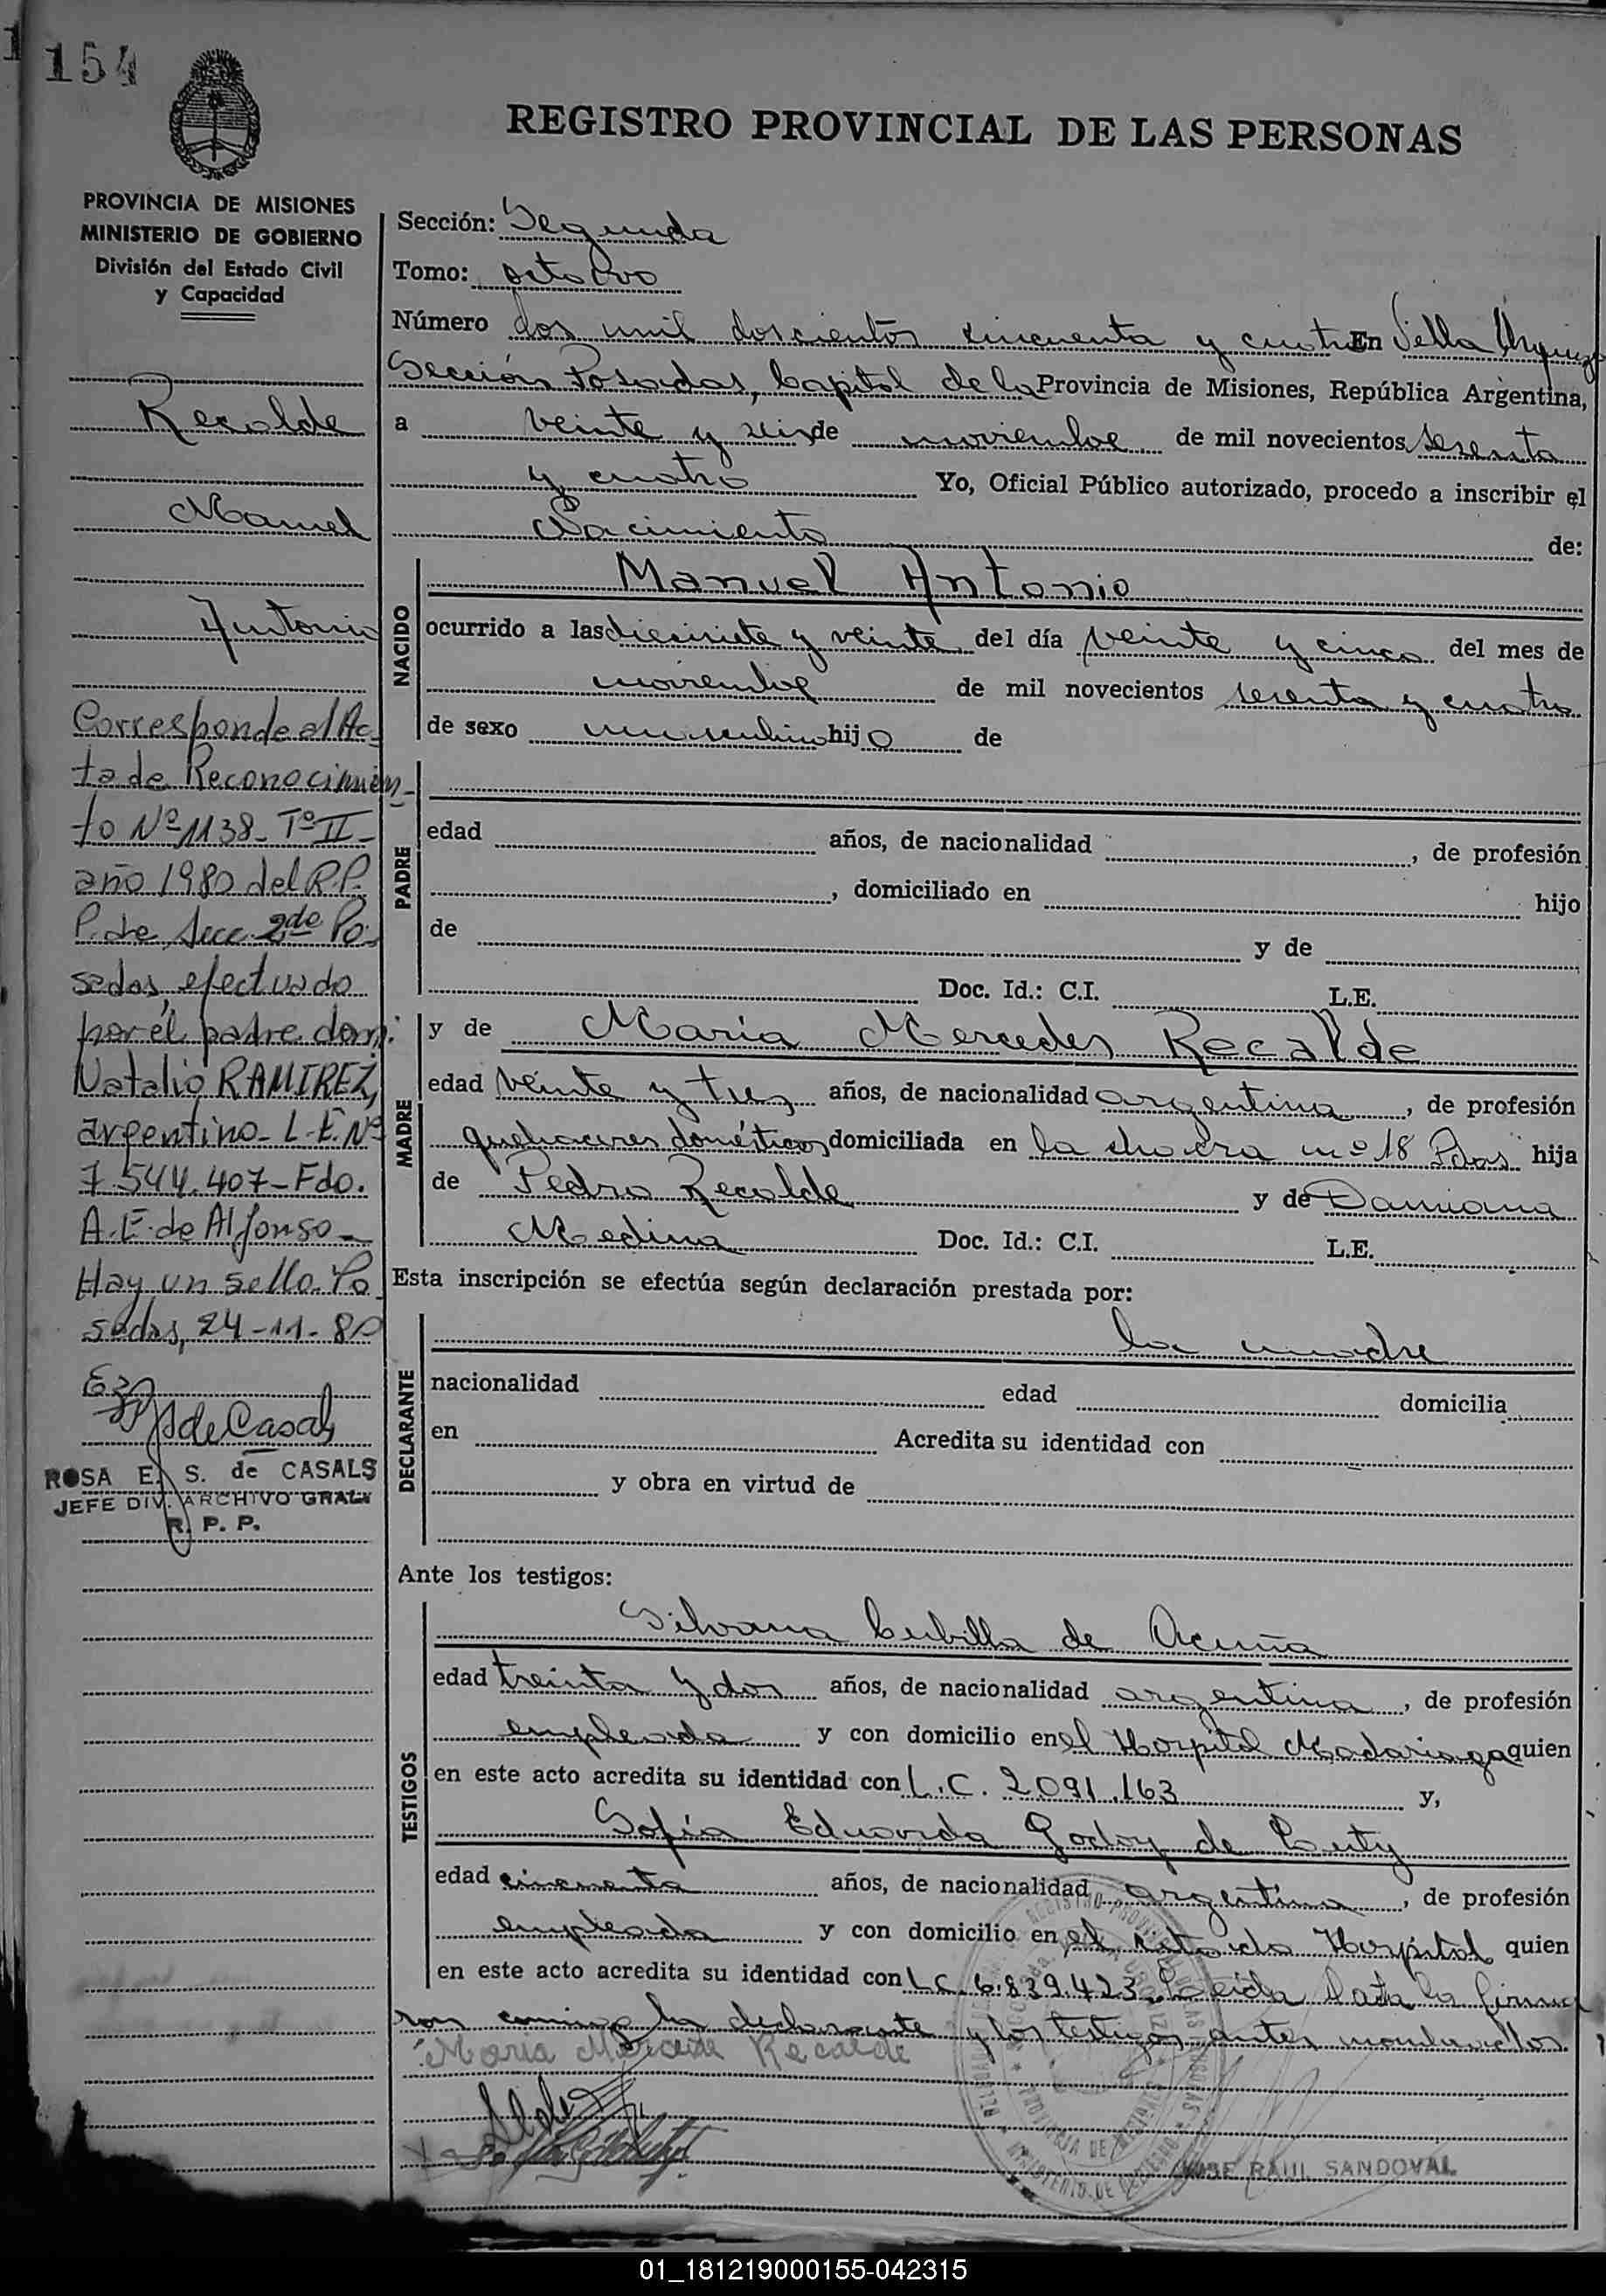 154
REGISTRO PROVINCIAL DE LAS PERSONAS
PROVINCIA DE MISIONES
MINISTERIO DE GOBIERNO
División del Estado Civil
y Capacidad
Recalde
Manuel
Antonio
Corresponde al Ac-
ta de Reconocimien-
to Nº 1138- Tº II-
año 1980 del R.P.
P. de Secc. 2da Po-
sadas, efectuado
por el padre don:
Natalio RAMIREZ,
argentino- L.E. Nº
7.544.407- Fdo.
A.E. de Alfonso-
Hay un sello. Po-
sadas, 24-11-80
de Casals
ROSA E. S. de CASALS
JEFE DIV. ARCHIVO GRAL.
R. P. P.
Sección: Segunda
Tomo: octavo
Número dos mil doscientos cincuenta y cuatro En Villa Urquiza
Sección Posadas, Capital de la Provincia de Misiones, República Argentina,
a veinte y seis de noviembre de mil novecientos sesenta
y cuatro Yo, Oficial Público autorizado, procedo a inscribir el
Nacimiento de:
NACIDO
Manuel Antonio
ocurrido a las diecisiete y veinte del día veinte y cinco del mes de
noviembre de mil novecientos sesenta y cuatro
de sexo masculino hijo de
PADRE
edad años, de nacionalidad , de profesión
, domiciliado en hijo
de y de
Doc. Id.: C.I. L.E.
MADRE
y de María Mercedes Recalde
edad veinte y tres años, de nacionalidad argentina , de profesión
quehaceres domésticos domiciliada en la chacra nº 18 Pdas hija
de Pedro Recalde y de Damiana
Medina Doc. Id.: C.I. L.E.
Esta inscripción se efectúa según declaración prestada por:
DECLARANTE
la madre
nacionalidad edad domicilia
en Acredita su identidad con
y obra en virtud de
Ante los testigos:
TESTIGOS
Silvana Cubilla de Acuña
edad treinta y dos años, de nacionalidad argentina , de profesión
empleada y con domicilio en el Hospital Madariaga quien
en este acto acredita su identidad con L.C. 2091.163 y,
Sofía Eduarda Godoy de Cuty
edad cincuenta años, de nacionalidad argentina , de profesión
empleada y con domicilio en el citado Hospital quien
en este acto acredita su identidad con L.C. 6.839.423. Leída la acta la firma
ron conmigo la declarante y los testigos antes nombrados.
María Mercede Recalde
JOSE RAUL SANDOVAL
01_181219000155-042315